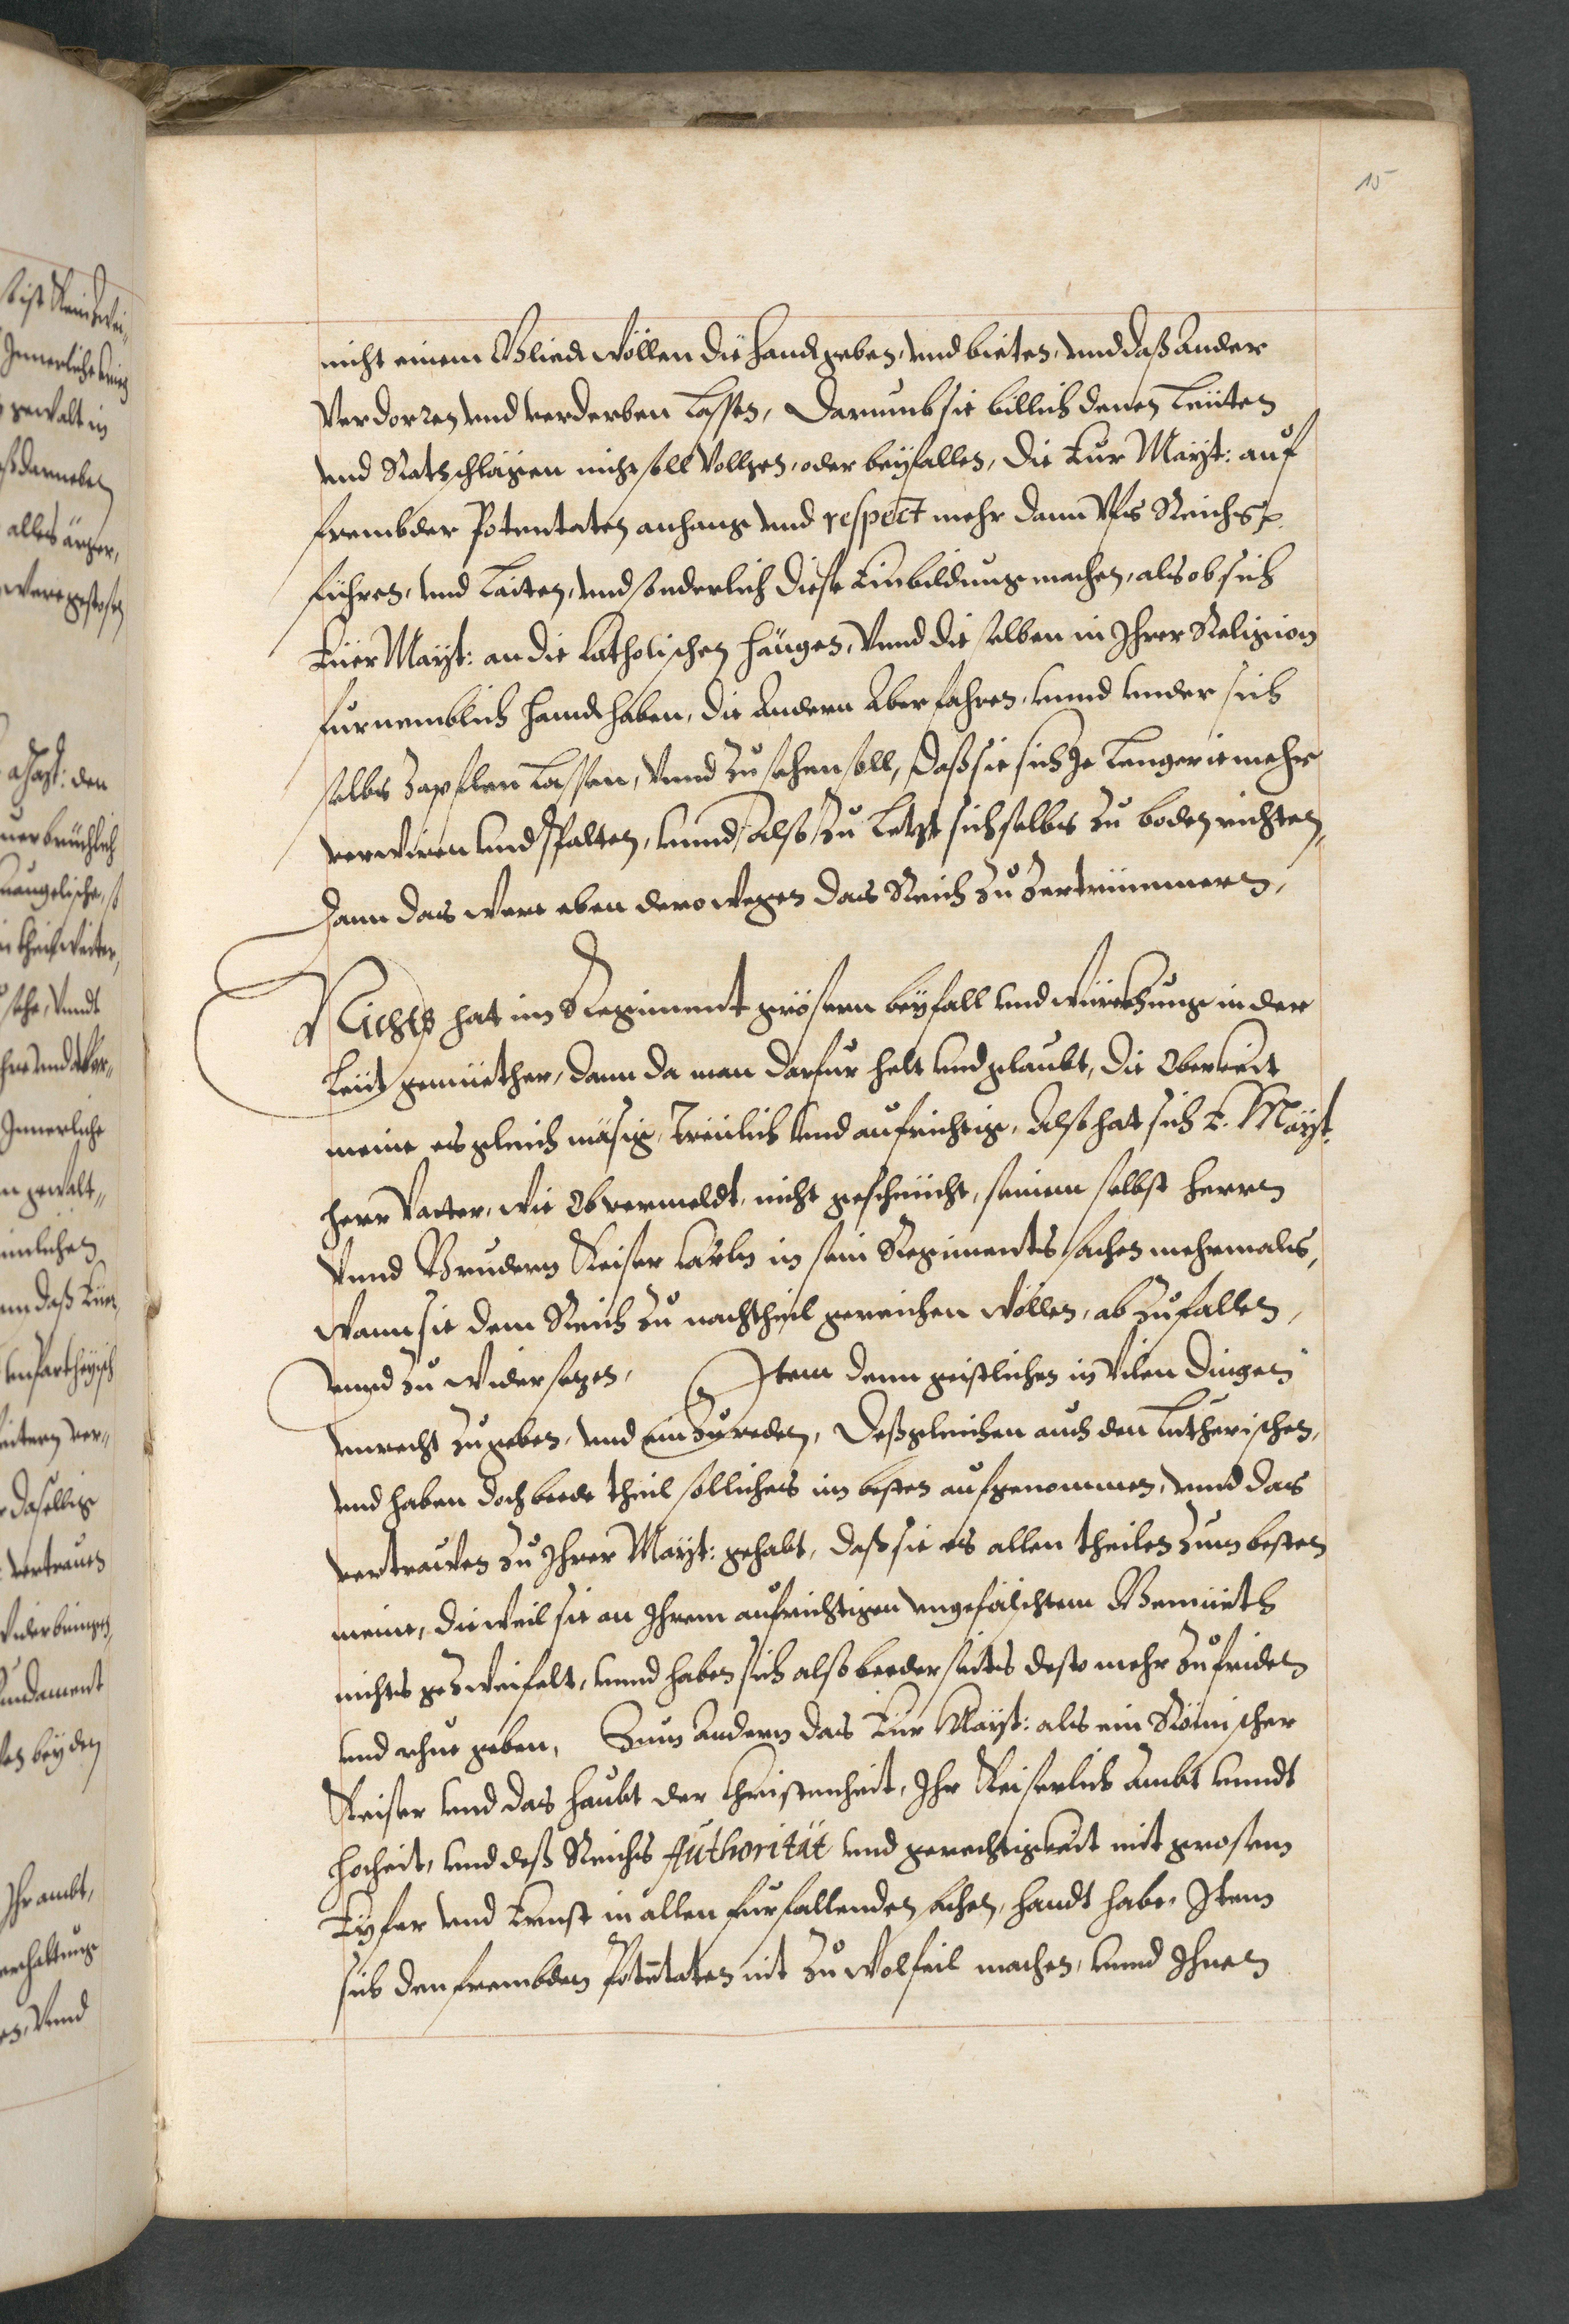 15
nicht einem Glied wöllen die handt geben, und bieten, und daß Ander
verdorren und verderben lassen, Darumb sie billich denen Leüten
und Ratschlägen nicht soll Volgen, oder beyfallen, die Eur Mayt: auf
frembder Potentaten anhang und respect mehr dann Ufs Reichs p.
führen, und Laiten, und sonderlich diese Einbildung machen, als ob sich
Euer Mayt: an die Catholischen hängen, Unnd die selben in Ihrer Religion
fürnemblich handthaben, die Andern Aber fahren, unnd under sich
selbs Zapflen Lassen, Unnd Zu sehen soll, daß sie sich Je Lenger ie mehr
verwiren und spalten, unnd also Zu Letzt sich selbs Zu boden richten,
Dann das were eben derowegen das Reich Zu Zertrümmern,
Nichts hat im Regiment grösern beyfall und würckhung in der
Leüt gemüether, dann da man darfür helt und glaubt, die Oberkeit
meine es gleich mäsig, Treülich und aufrichtig, Also hat sich E. Mayt.
herr Vatter, wie Obvermeldt, nicht gescheücht, seinem selbst herren
Unnd Bruedern Keiser Carln in sein Regiments sachen mehrmals,
Wann sie dem Reich Zu nachtheil gereichen wöllen, ab Zu fallen,
unnd Zu widersezen, Item denn geistlichen in vilen dingen
unrecht Zu geben, und ein Zu reden, Deßgleichen auch den Lutherischen,
und haben doch beede theil sollichs im besten aufgenommen, unnd das
vertrauwen Zu Ihrer Mayt: gehabt, daß sie es allen theilen Zum besten
meine, dieweil sie an Ihrem aufrichtigen ungefälschtem Gemüeth
nichts gezweifelt, unnd haben sich also beederseits desto mehr Zu friden
und rhue geben, Zum Andern das Eur Mayt: als ein Römischer
Keiser und das haubt der Christenheit, Ihr Keiserlich Ambt unndt
hocheit, und deß Reichs Authorität und gerechtigkeit mit grosem
Eyfer und Ernst in allen fürfallenden sachen, handt habe, Item
sich den frembden Potentaten nit Zu Wolfeil machen, unnd Ihnen